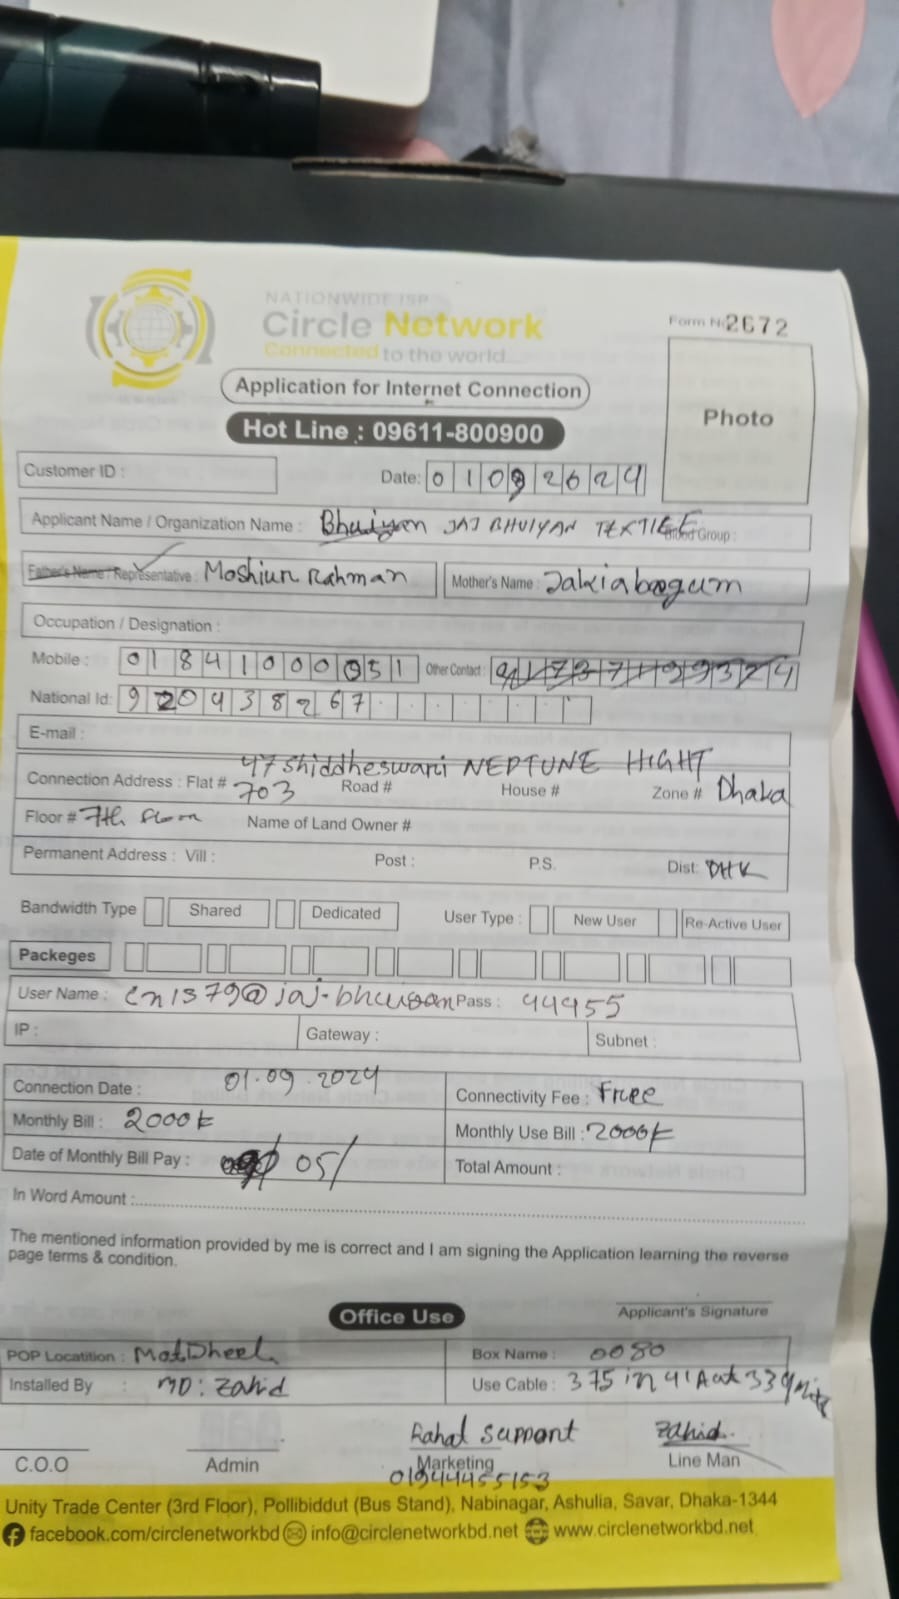 NATIONWIDE ISP
Circle Network
Connected to the world
Form No 2672
Application for Internet Connection
Photo
Hot Line : 09611-800900
Customer ID :
Date: 01092024
Applicant Name / Organization Name : Bhuiyan JAJ BHUIYAN TEXTILE Blood Group :
Father's Name / Representative : Moshiur Rahman
Mother's Name : Jakiabegum
Occupation / Designation :
Mobile : 01841000951 Other Contact :
National Id: 920438267
E-mail :
47 Shiddheswari NEPTUNE HIGHT
Connection Address : Flat # 703 Road # House # Zone # Dhaka
Floor # 7th floor Name of Land Owner #
Permanent Address : Vill : Post : P.S. Dist: DHK
Bandwidth Type Shared Dedicated User Type : New User Re-Active User
Packeges
User Name : Pass : 44455
IP : Gateway : Subnet :
Connection Date : 01.09.2024
Connectivity Fee : Free
Monthly Bill : 2000৳
Monthly Use Bill : 2000৳
Date of Monthly Bill Pay : 05/
Total Amount :
In Word Amount :
The mentioned information provided by me is correct and I am signing the Application learning the reverse
page terms & condition.
Applicant's Signature
Office Use
POP Locatition : MotDheel
Box Name : 0080
Installed By : MD: Zahid
Use Cable : 375 in
Rahat Support
Zahid
C.O.O Admin Marketing Line Man
01944455153
Unity Trade Center (3rd Floor), Pollibiddut (Bus Stand), Nabinagar, Ashulia, Savar, Dhaka-1344
facebook.com/circlenetworkbd info@circlenetworkbd.net www.circlenetworkbd.net